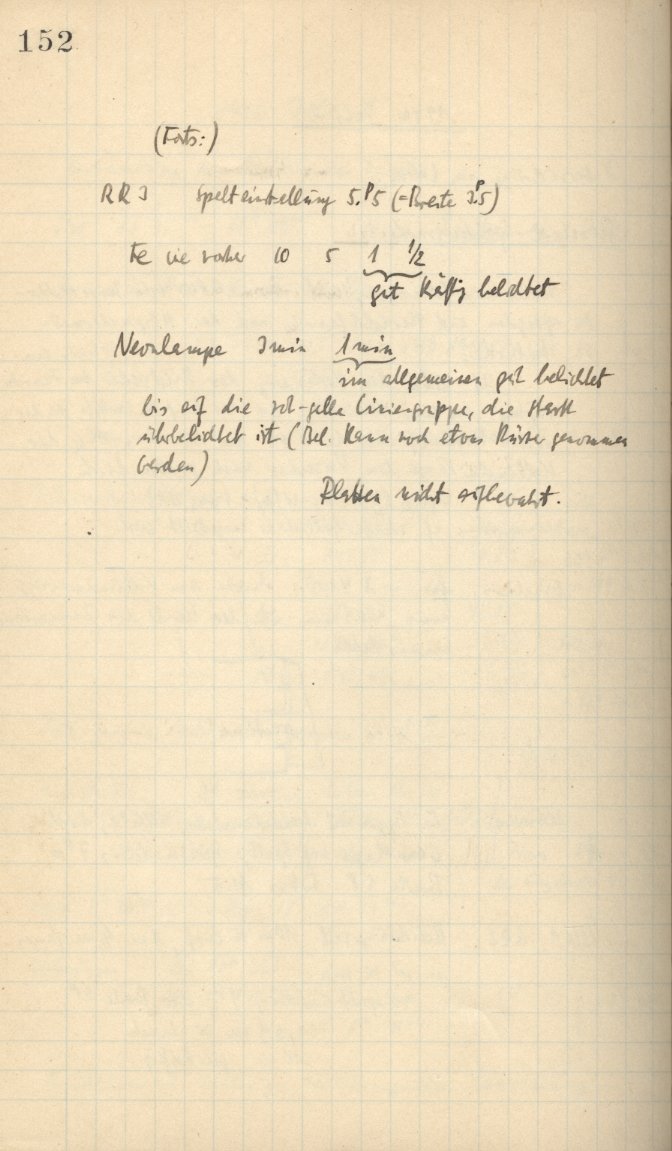 152
(Forts:)
RR 3 Spalteinstellung 5.P5 (=Breite 3.P5)
Fe wie vorher 10 5 1 1/2
gut kräftig belichtet
Neonlampe 3 min 1 min
im allgemeinen gut belichtet
bis auf die rot-gelbe Liniengruppe, die stark
überbelichtet ist (Bel. kann noch etwas kürzer genommen
werden)
Platten nicht aufbewahrt.